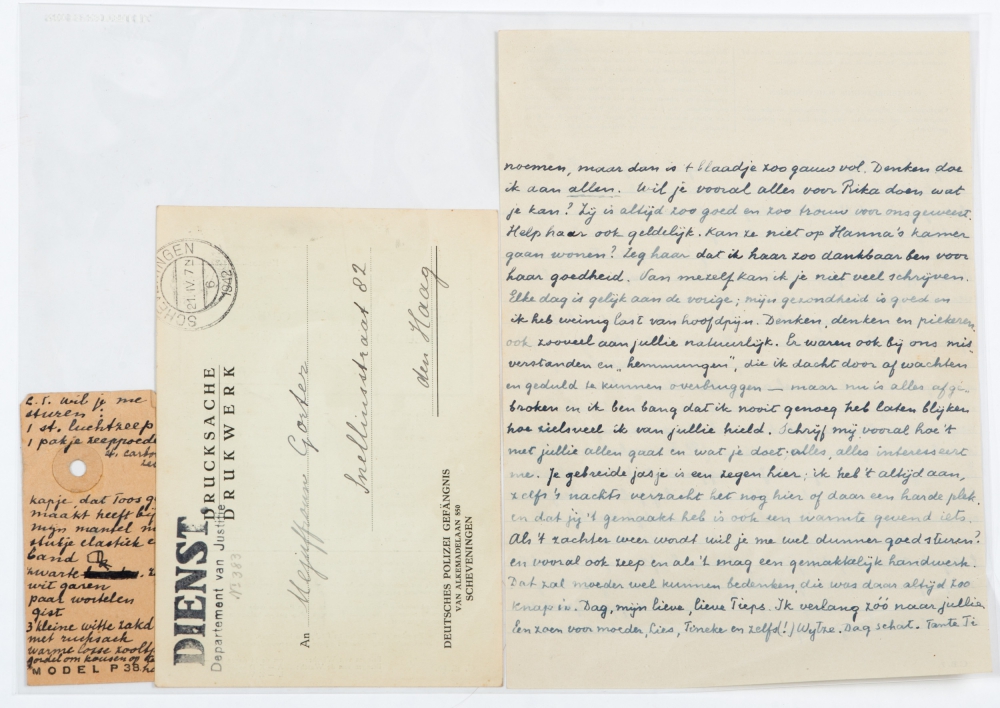 C.T. wil je me
sturen:
1 st. luchtzeep
1 pakje zeeppoed
4. carbo
kapje, dat Toos g
maakt heeft bij
mijn mantel m
stukje elastiek e
band
zwarte
wit garen
paar wortelen
gist
3 kleine witte zakd
met rucksach
warme losse
gordel om kousen op te
MODEL P 38.
SCHEVENINGEN
21.IV.7
6
1942
DIENST.
Departement van Justitie
№ 383
DRUCKSACHE
DRUKWERK
An Mejuffrouw Gorter
Snelliusstraat 82
den Haag
DEUTSCHES POLIZEI GEFÄNGNIS
VAN ALKEMADELAAN 850
SCHEVENINGEN
noemen, maar dan is 't blaadje zoo gauw vol. Denken doe
ik aan allen. Wil je vooral alles voor Rika doen wat
je kan? Zij is altijd zoo goed en zoo trouw voor ons geweest.
Help haar ook geldelijk. Kan ze niet op Hanna's kamer
gaan wonen? Zeg haar dat ik haar zoo dankbaar ben voor
haar goedheid. Van mezelf kan ik je niet veel schrijven.
Elke dag is gelijk aan de vorige; mijn gezondheid is goed en
ik heb weinig last van hoofdpijn. Denken, denken en piekeren,
ook zooveel aan jullie natuurlijk. Er waren ook bij ons mis
verstanden en „hemmungen", die ik dacht door afwachten
en geduld te kunnen overbruggen — maar nu is alles afge
broken en ik ben bang dat ik nooit genoeg heb laten blijken
hoe zielsveel ik van jullie hield. Schrijf mij vooral hoe 't
met jullie allen gaat en wat je doet: alles, alles interesseert
me. Je gebreide jasje is een zegen hier; ik heb 't altijd aan,
zelfs 's nachts verzacht het nog hier of daar een harde plek
en dat jij 't gemaakt heb is ook een warmte gevend iets.
Als 't zachter weer wordt wil je me wel dunner goed sturen?
en vooral ook zeep en als 't mag een gemakkelijk handwerk.
Dat zal moeder wel kunnen bedenken, die was daar altijd zoo
knap in. Dag, mijn lieve, lieve Tieps. Ik verlang zóó naar jullie.
Een zoen voor moeder, Cies, Tineke en zelfs(!) Wytze. Dag schat. Tante Ti